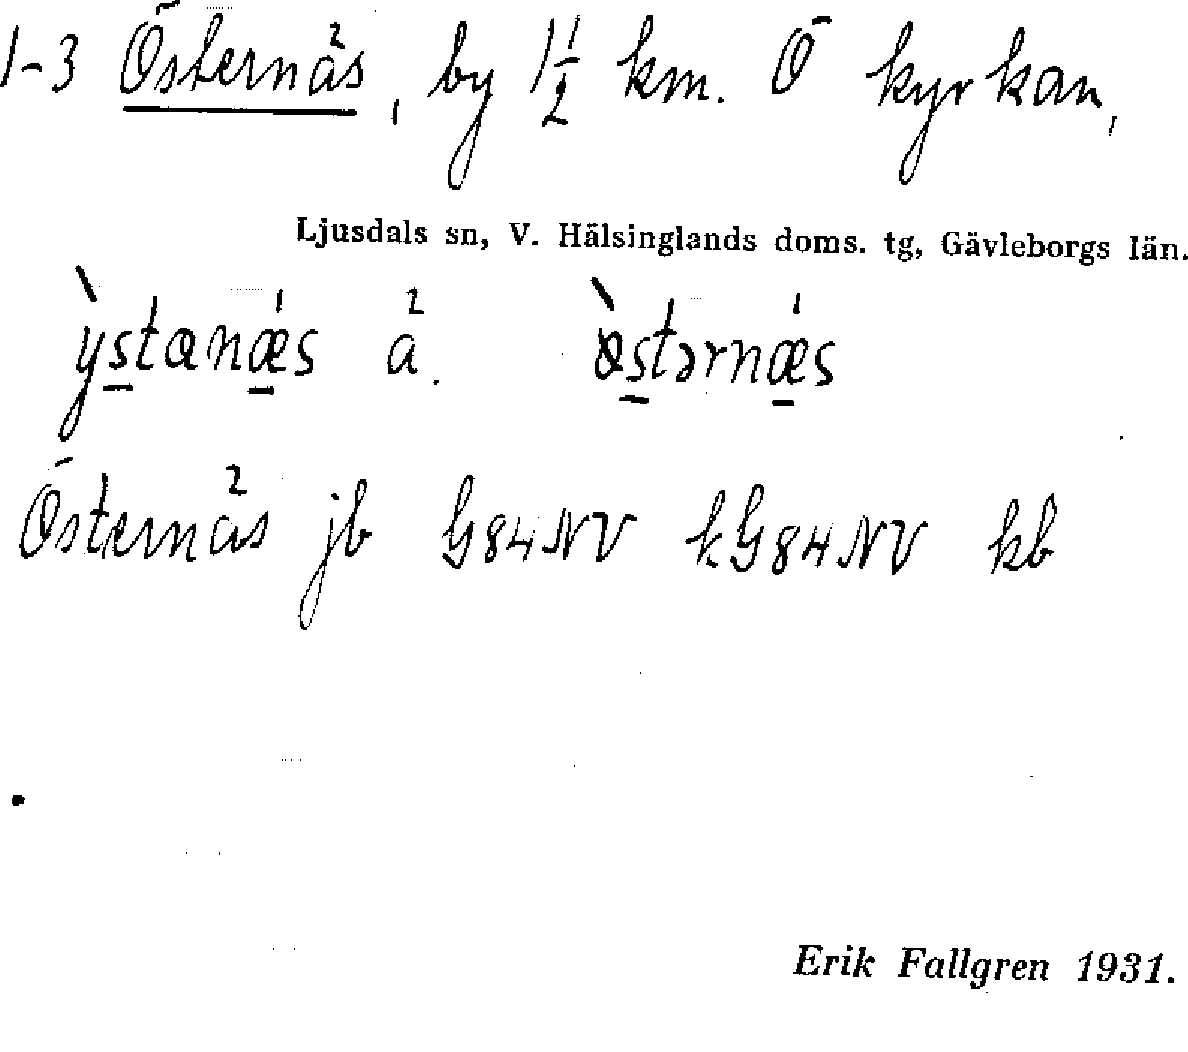 1-3 Östernäs, by 1 1/2 km. Ö kyrkan,
Ljusdals sn, V. Hälsinglands doms. tg, Gävleborgs län.
ỳstanǽs ä. ø̀stərnǽs
Östernäs jb G84NV kG84NV kb
Erik Fallgren 1931.